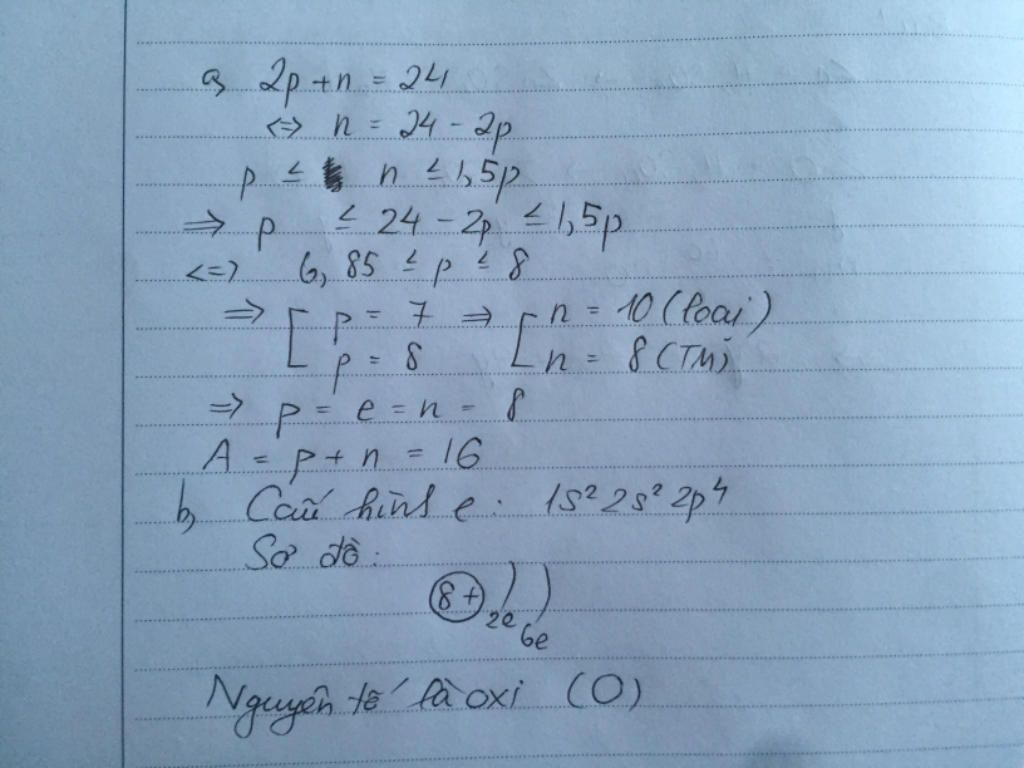 a, 2p + n = 24
<=> n = 24 - 2p
p ≤ n ≤ 1,5p
=> p ≤ 24 - 2p ≤ 1,5p
<=> 6,85 ≤ p ≤ 8
=> [ p = 7 => [ n = 10 (loại)
p = 8 n = 8 (TM)
=> p = e = n = 8
A = p + n = 16
b, Cấu hình e: 1s² 2s² 2p⁴
Sơ đồ:
8+ ) )
2e 6e
Nguyên tố là oxi (O)